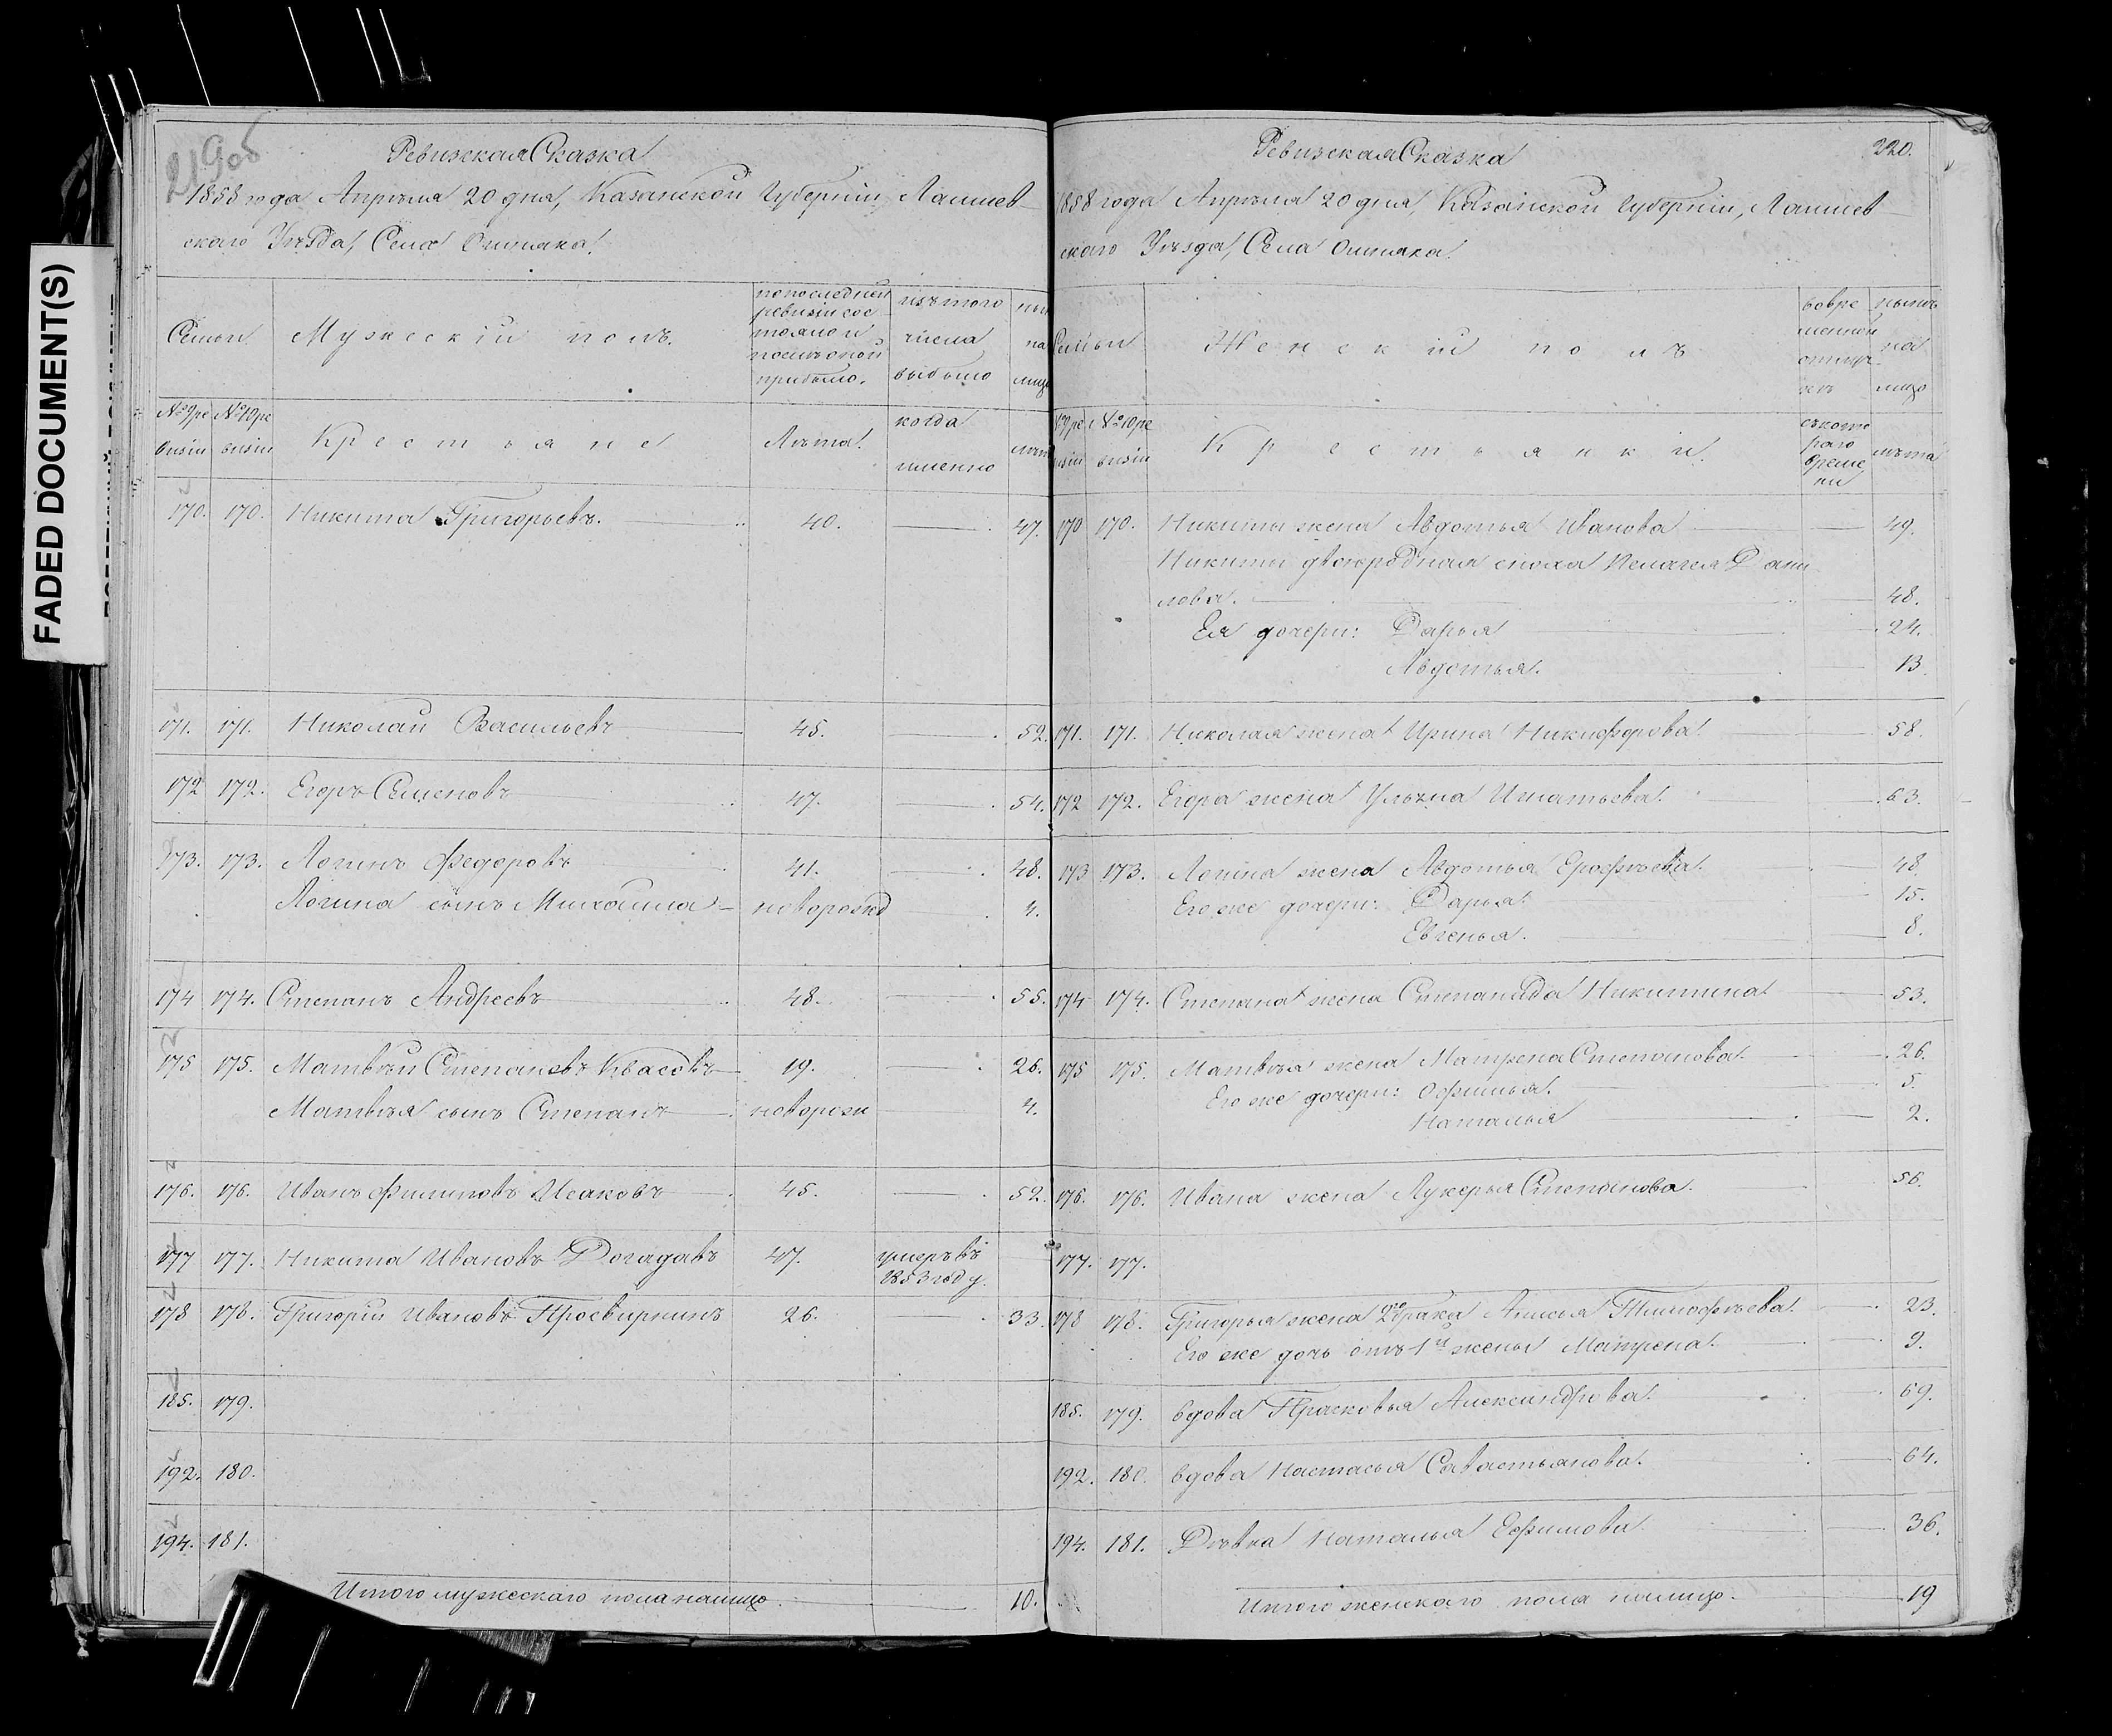 FADED DOCUMENT(S)
219об
Ревизская Сказка
1858 года Апрѣля 20 дня, Казанской Губерніи, Лаишев
скаго Уѣзда, Села
Семьи
Мужескій полъ.
по последней
ревизіи сос
тояло и
послѣ оной
прибыло.
изъ того
числа
выбыло
на
лицо
№ 9 ре
визіи
№ 10 ре
визіи
Крестьяне
Лѣта.
когда
именно
170. 170. Никита Григорьевъ. 40. 47.
171. 171. Николай Васильевъ 45. 52.
172 172. Егоръ Семеновъ 47. 54.
173. 173. Логинъ Федоровъ 41. 48.
Логина сынъ Михаила новорожд 4.
174 174. Степанъ Андреевъ 48. 55.
175 175. Матвѣй Степановъ Квасовъ 19. 26.
Матвѣя сынъ Степанъ новорож 4.
176. 176. Иванъ Филиповъ Исаковъ 45. 52.
177 177. Никита Ивановъ Догадавъ 47. умеръ въ
1853 году.
178 178. Григорій Ивановъ Просвирнинъ 26. 33.
185. 179.
192. 180.
194. 181.
Итого мужескаго пола налицо 10.
Ревизская Сказка
220.
1858 года Апрѣля 20 дня, Казанской Губерніи, Лаишев
скаго Уѣзда, Села
Семьи
Женскій полъ
во вре
менной
отлуч
кѣ
нынѣ
на
лицо
№ 9 ре
визіи
№ 10 ре
визіи
Крестьянки.
съ кото
раго
време
ни
лѣта
170 170. Никиты жена Авдотья Иванова 49.
Никиты двоюродная сноха Пелагея Дани
лова. 48.
Ея дочери: Дарья 24.
Авдотья. 13.
171. 171. Николая жена Ирина Никифорова. 58.
172 172. Егора жена Ульяна Игнатьева. 63.
173 173. Логина жена Авдотья Ерофѣева. 48
Его же дочери: Дарья. 15.
Евгенья. 8.
174 174. Степана жена Степанида Никитина 53.
175 175. Матвѣя жена Матрена Степанова. 26.
Его же дочери: Офимья. 5.
Наталья 2.
176. 176. Ивана жена Лукерья Степанова. 56.
177. 177.
178 178. Григорья жена 2го брака Анисья Тимофѣева. 23.
Его же дочь отъ 1й жены Матрена. 9.
185. 179. вдова Прасковья Александрова. 69.
192. 180. вдова Настасья Савастьянова. 64.
194. 181. Дѣвка Наталья Ефимова 36.
Итого женскаго пола налицо. 19